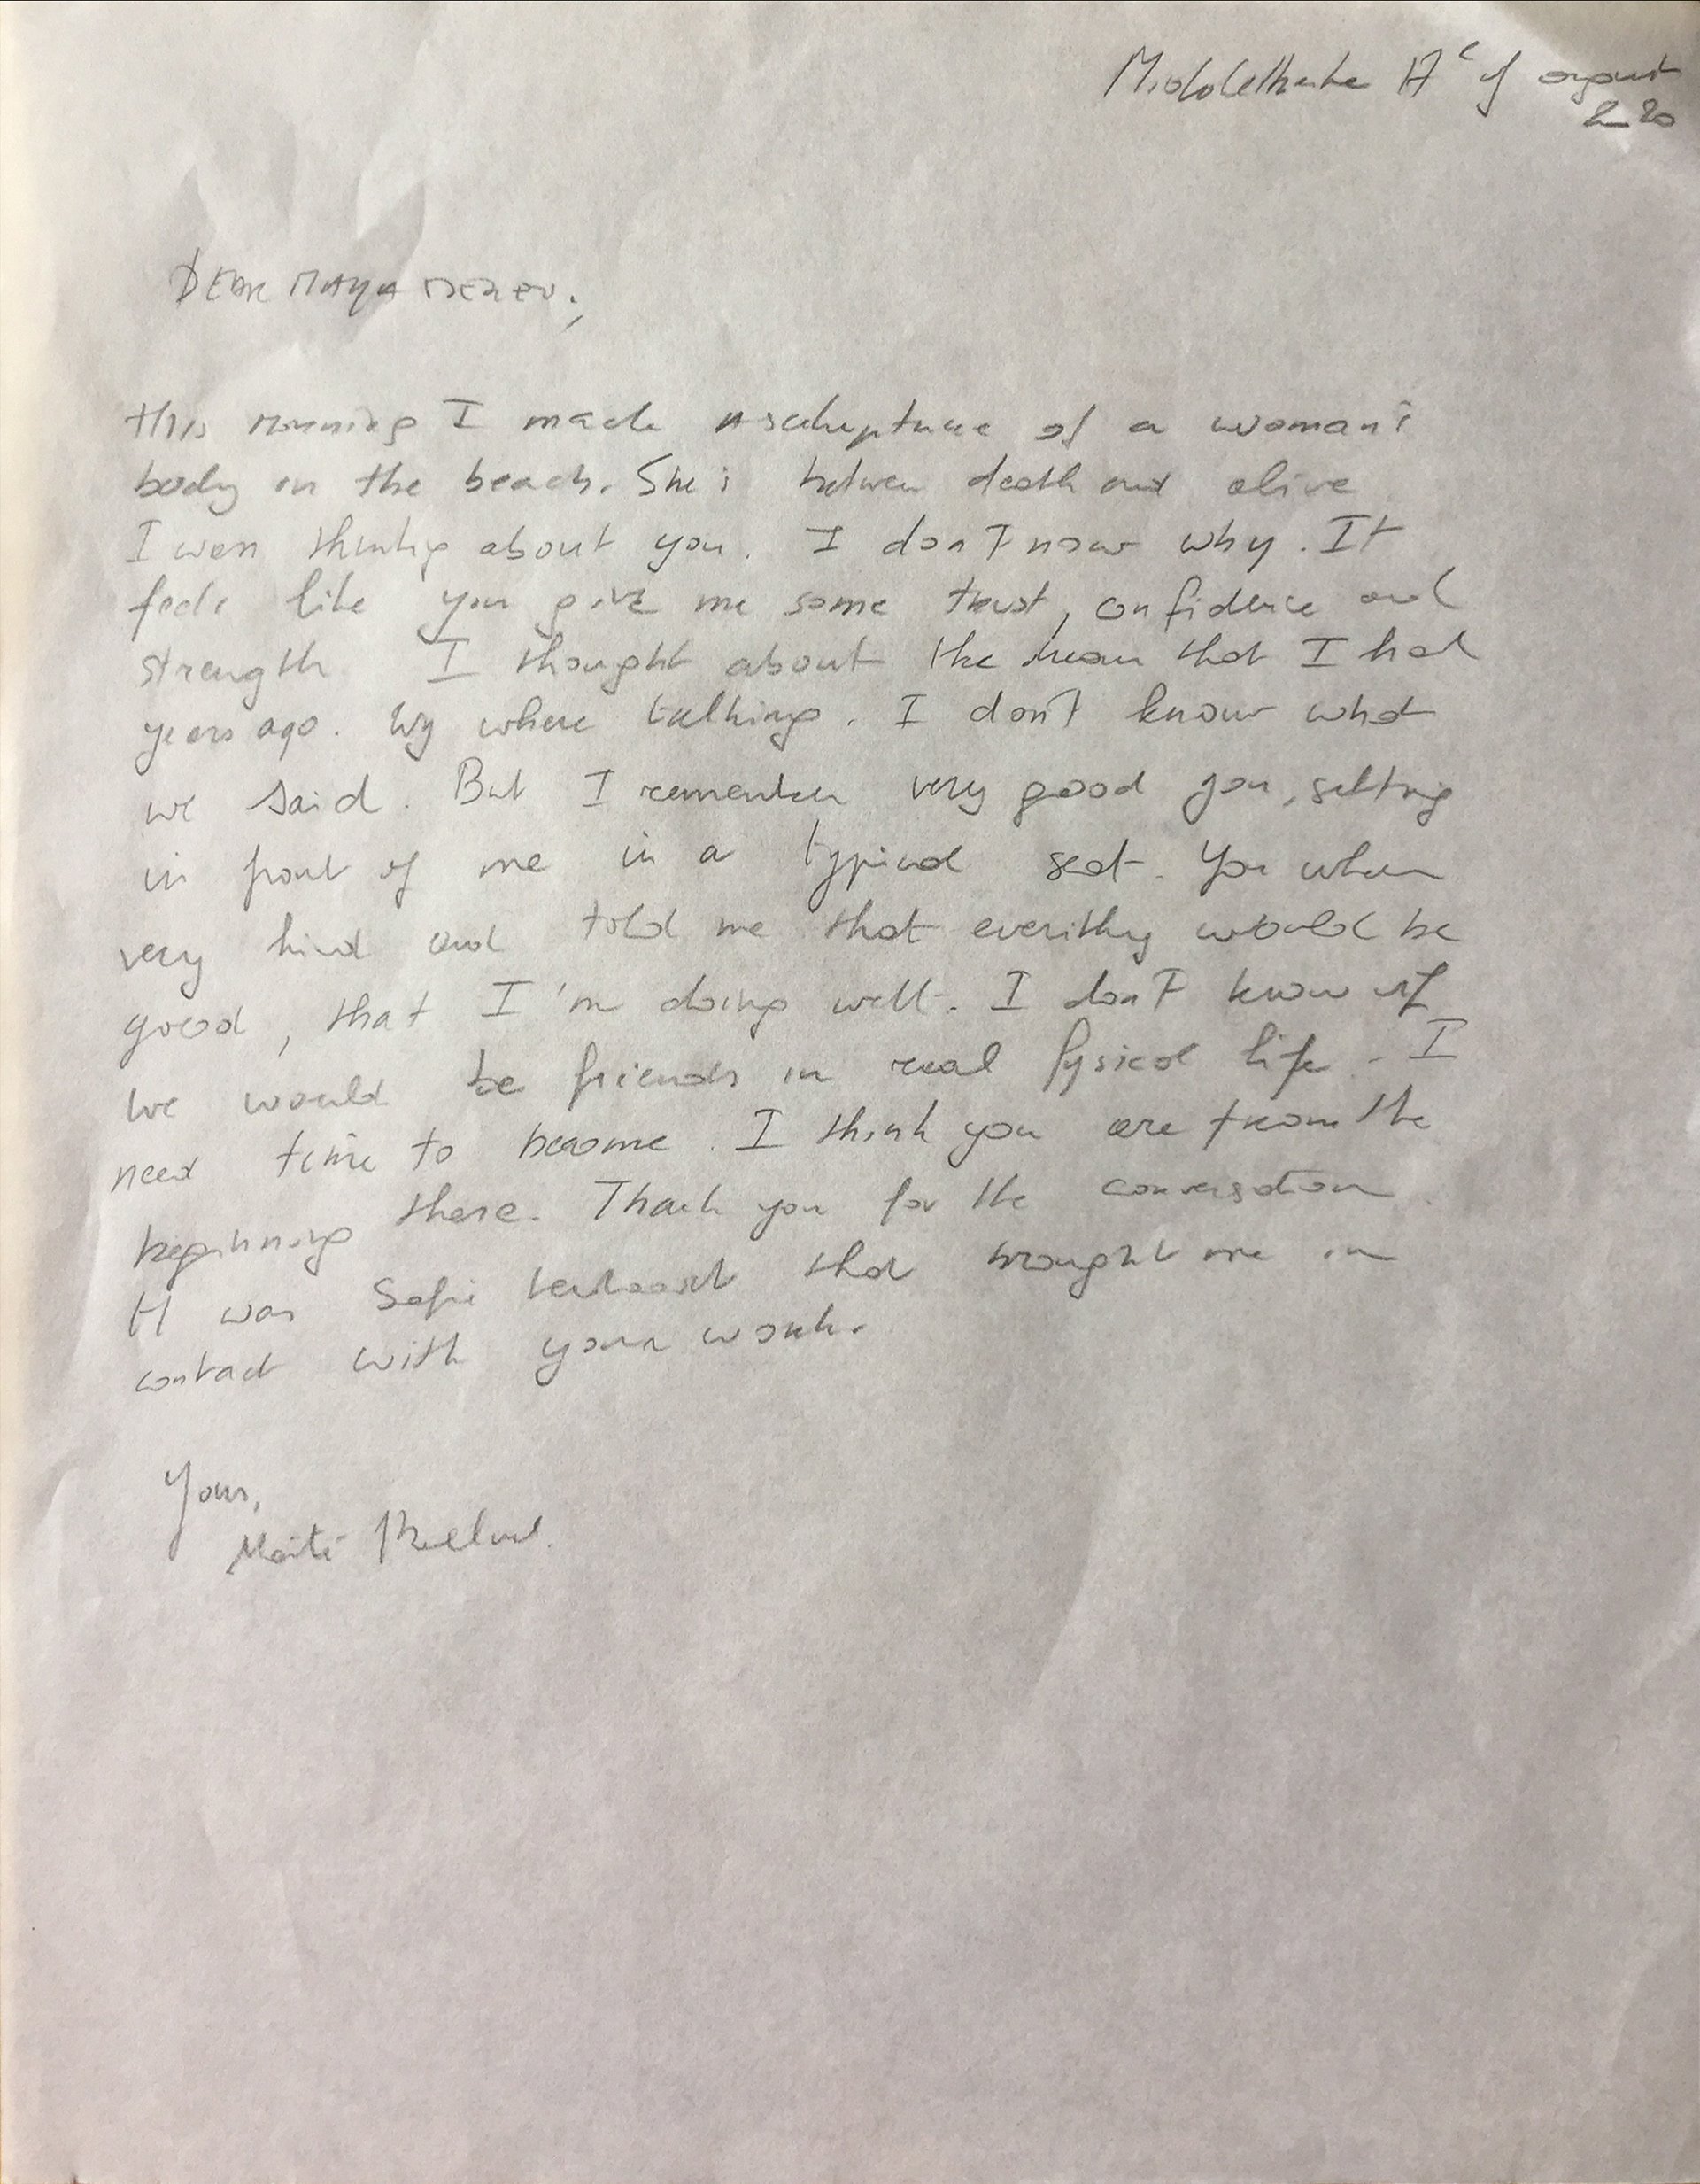 of august
DEAR MAYA DEREN,
this morning I made a sculpture of a woman's
body on the beach. She is between death and alive
I was thinking about you. I don't now why. It
feels like you give me some trust, confidence and
strength. I thought about the dream that I had
years ago. Wy where talking. I don't know what
we said. But I remember very good you, sitting
in front of me in a typical seat. You when
very kind and told me that everithing would be
good, that I'm doing well. I don't know if
we would be friends in real fysical life. I
need time to become. I think you are from the
beginning there. Thank you for the conversation.
It was Sofie that brought me in
contact with your work.
Yours,
Maïté